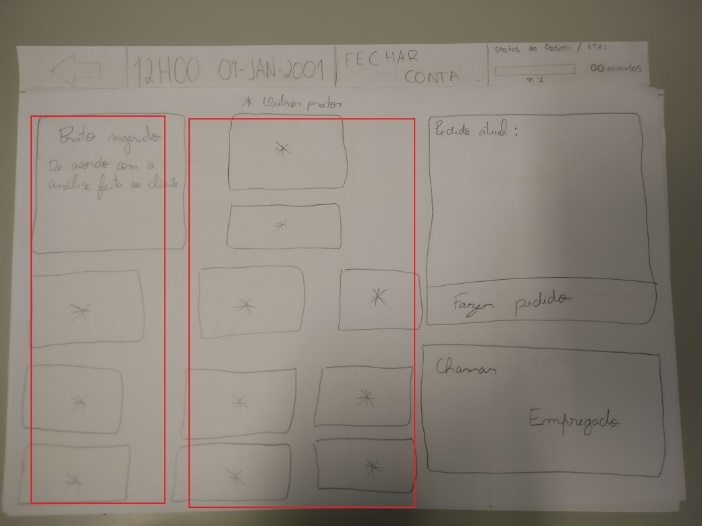 12H00 01-JAN-2001
FECHAR
CONTA
Status do Pedido / ETA:
00 minutos
* Outros pratos
Prato sugerido
De acordo com a
análise feita ao cliente
*
*
*
*
*
*
*
*
*
*
*
Pedido atual:
Fazer pedido
Chamar
Empregado